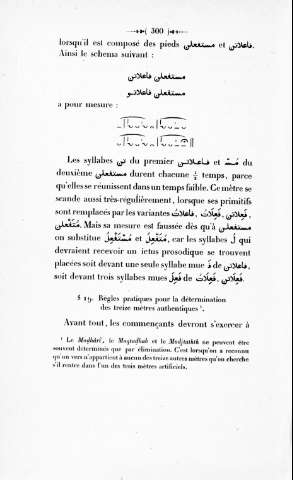 300
lorsqu'il est composé des pieds مستفعلن et فاعلاتن.
Ainsi le schema suivant :
مستفعلن فاعلاتن
مستفعلن فاعلاتـو
a pour mesure :
Les syllabes تن du premier فـاعـلاتـن et مُسْـ du
deuxième مستفعلن durent chacune ½ temps, parce
qu'elles se réunissent dans un temps faible. Ce mètre se
scande aussi très-régulièrement, lorsque ses primitifs
sont remplacés par les variantes فَعِلاتن, فَعِلَاتُ, فاعلاتُ,
مُتَفْعِلن. Mais sa mesure est faussée dès qu'à مستفعلن
on substitue مُتَفْعِلُ et مُسْتَفْعِلُ, car les syllabes لُ qui
devraient recevoir un ictus prosodique se trouvent
placées soit devant une seule syllabe mue فَـ de فاعلاتن,
soit devant trois syllabes mues فَعِلَ de فَعِلَاتُ, فَعِلاتن.
§ 19. Règles pratiques pour la détermination
des treize mètres authentiques ¹.
Avant tout, les commençants devront s'exercer à
¹ Le Modhâri', le Moqtadhab et le Modjtathth ne peuvent être
souvent déterminés que par élimination. C'est lorsqu'on a reconnu
qu'un vers n'appartient à aucun des treize autres mètres qu'on cherche
s'il rentre dans l'un des trois mètres artificiels.